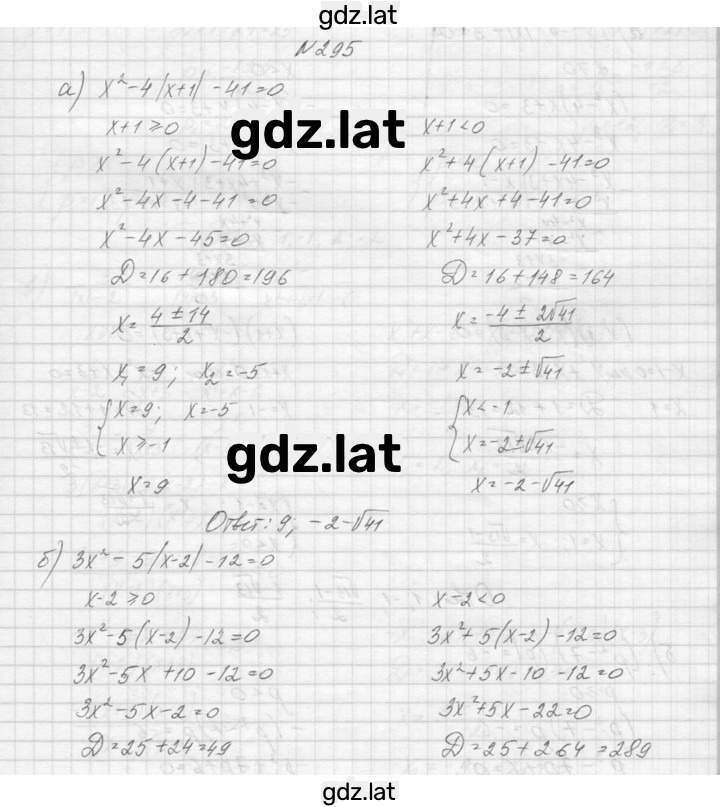 gdz.lat
№295
а) x²-4|x+1|-41=0
x+1≥0
x²-4(x+1)-41=0
x²-4x-4-41=0
x²-4x-45=0
D=16+180=196
x=(4±14)/2
x₁=9; x₂=-5
{x=9; x=-5
x≥-1
x=9
x+1<0
x²+4(x+1)-41=0
x²+4x+4-41=0
x²+4x-37=0
D=16+148=164
x=(-4±2√41)/2
x=-2±√41
{x<-1
x=-2±√41
x=-2-√41
gdz.lat
gdz.lat
Ответ: 9; -2-√41
б) 3x²-5|x-2|-12=0
x-2≥0
3x²-5(x-2)-12=0
3x²-5x+10-12=0
3x²-5x-2=0
D=25+24=49
x-2<0
3x²+5(x-2)-12=0
3x²+5x-10-12=0
3x²+5x-22=0
D=25+264=289
gdz.lat